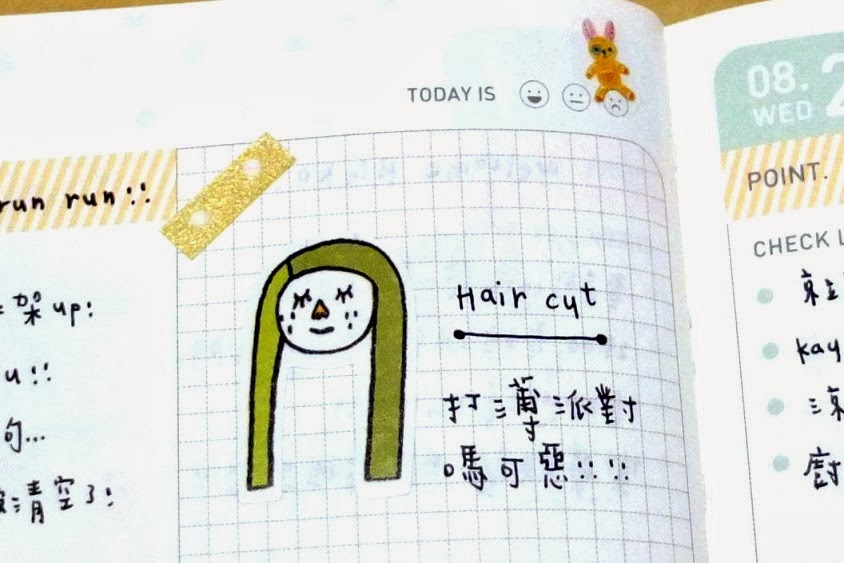 TODAY IS
run run!!
架up!
u!!
句...
清空了!
Hair cut
打薄派對
嗎可惡!!!!
08.2
WED
POINT.
CHECK L
kay
涼
廚